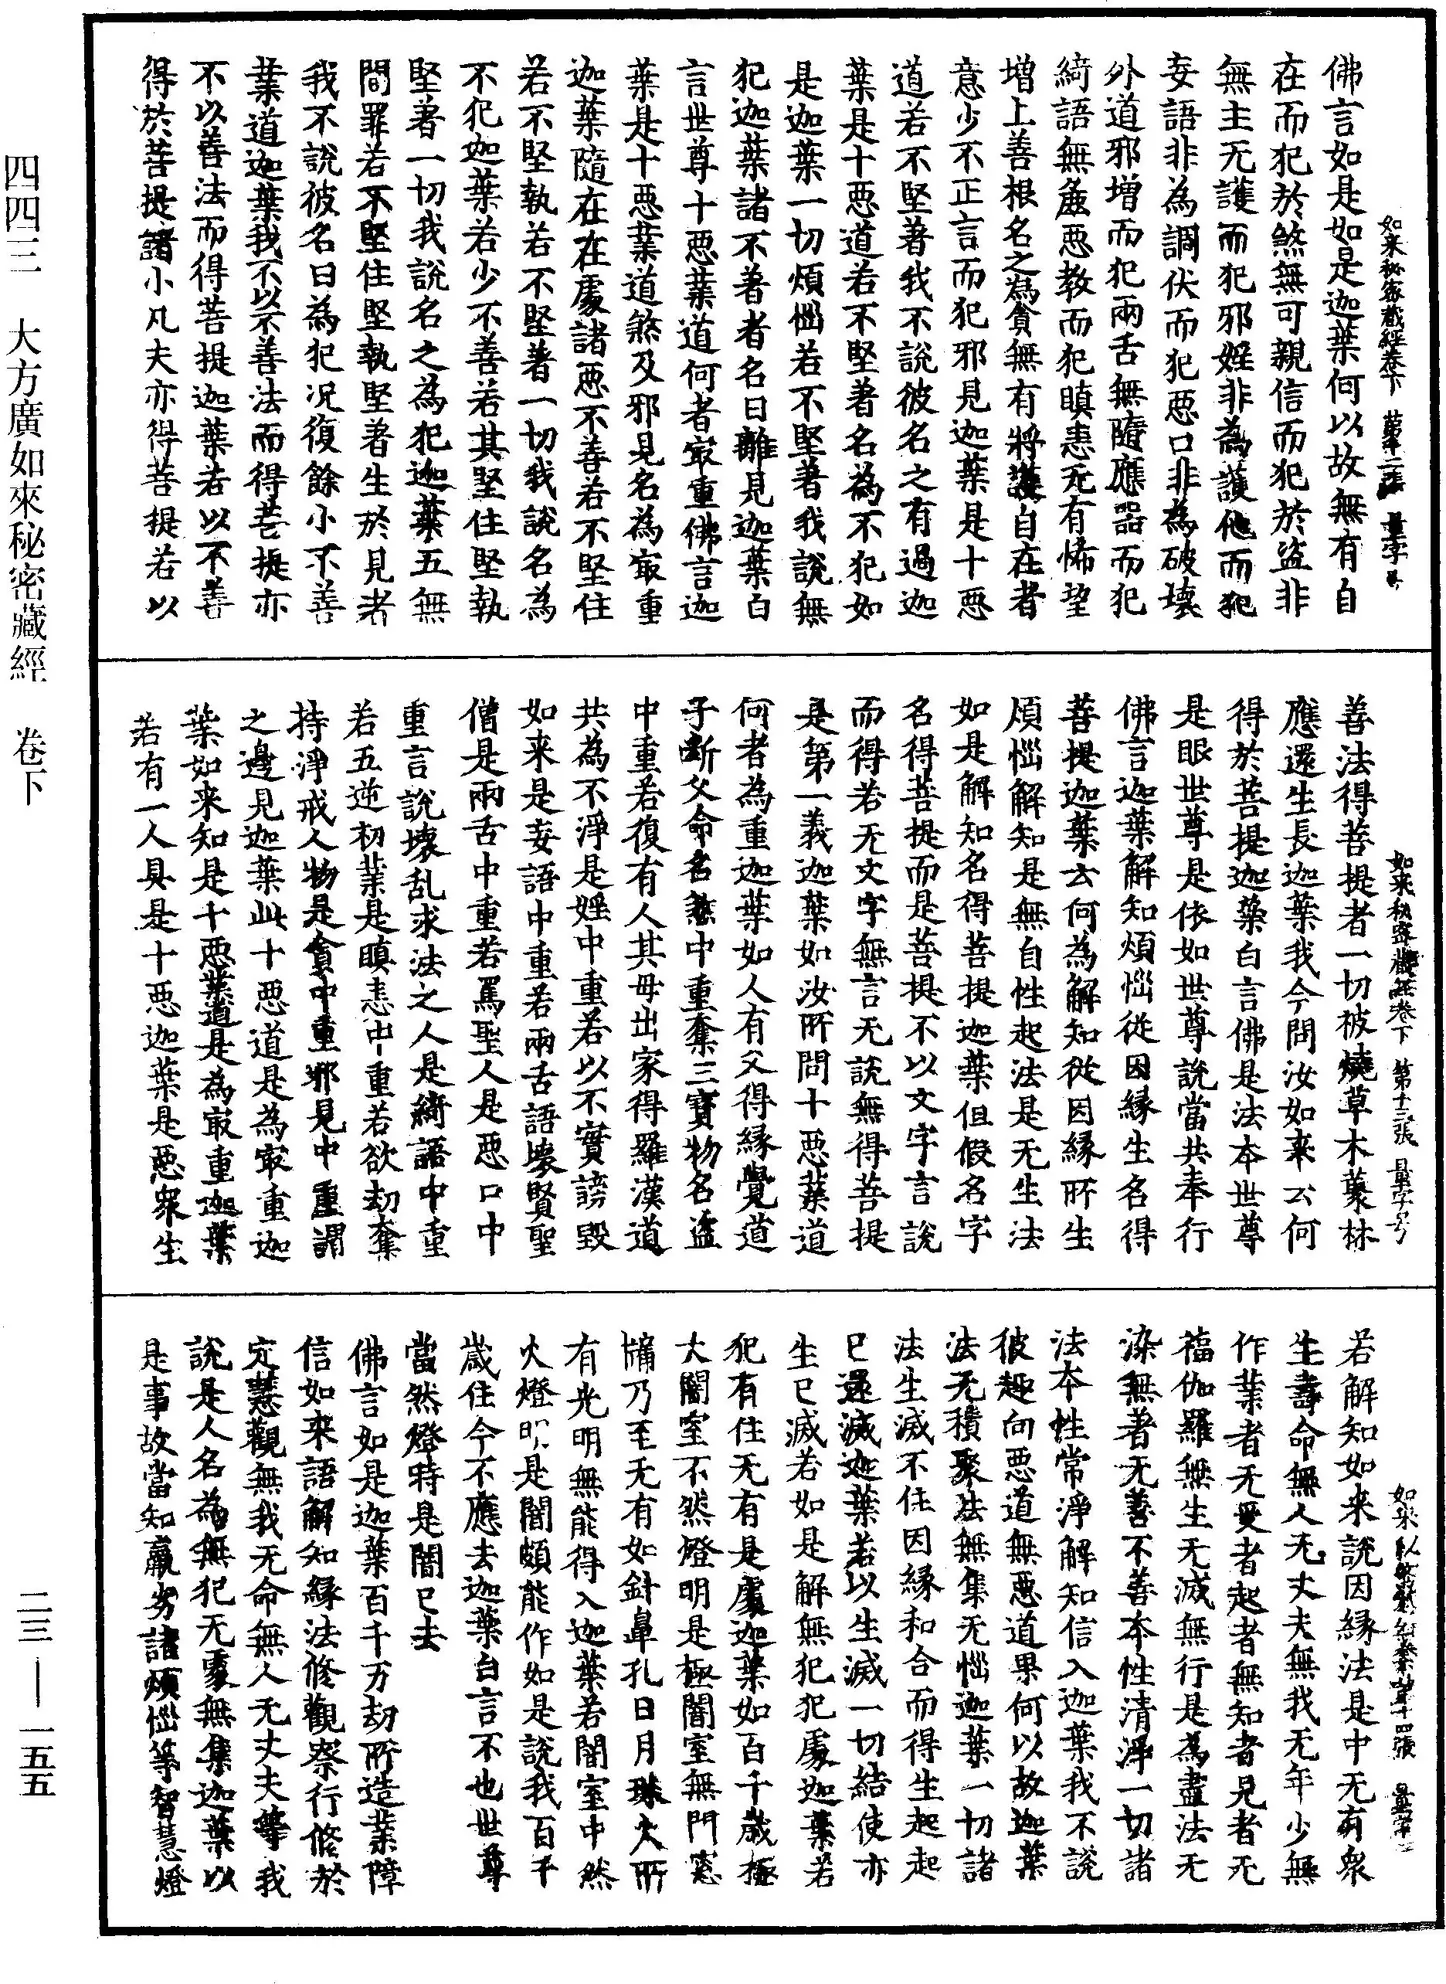 如来秘密藏經卷下 第十二張 量字号
佛言如是如是迦葉何以故無有自
在而犯於煞無可親信而犯於盗非
無主无護而犯邪婬非為護他而犯
妄語非為調伏而犯惡口非為破壞
外道邪增而犯兩舌無隨應器而犯
綺語無麁惡教而犯瞋恚无有悕望
增上善根名之為貪無有將護自在者
意少不正言而犯邪見迦葉是十惡
道若不堅著我不說彼名之有過迦
葉是十惡道若不堅著名為不犯如
是迦葉一切煩惱若不堅著我說無
犯迦葉諸不著者名曰離見迦葉白
言世尊十惡葉道何者㝡重佛言迦
葉是十惡業道煞及邪見名為㝡重
迦葉隨在在處諸惡不善若不堅住
若不堅執若不堅著一切我說名為
不犯迦葉若少不善若其堅住堅執
堅著一切我說名之為犯迦葉五無
間罪若不堅住堅執堅著生於見者
我不說彼名曰為犯况復餘小不善
業道迦葉我不以不善法而得菩提亦
不以善法而得菩提迦葉若以不善
得於菩提諸小凡夫亦得菩提若以
如来秘密藏經卷下 第十三張 量字号
善法得菩提者一切被燒草木藂林
應還生長迦葉我今問汝如来云何
得於菩提迦葉白言佛是法本世尊
是眼世尊是依如世尊說當共奉行
佛言迦葉解知煩惱從因縁生名得
菩提迦葉云何為解知從因縁所生
煩惱解知是無自性起法是无生法
如是解知名得菩提迦葉但假名字
名得菩提而是菩提不以文字言說
而得若无文字無言无說無得菩提
是第一義迦葉如汝所問十惡業道
何者為重迦葉如人有父得緣覺道
子斷父命名煞中重奪三寶物名盜
中重若復有人其母出家得羅漢道
共為不淨是婬中重若以不實謗毀
如来是妄語中重若兩舌語壞賢聖
僧是兩舌中重若罵聖人是惡口中
重言說壞乱求法之人是綺語中重
若五逆初業是瞋恚中重若欲劫奪
持淨戒人物是貪中重邪見中重謂
之邊見迦葉此十惡道是為㝡重迦
葉如来知是十惡業道是為㝡重迦葉
若有一人具是十惡迦葉是惡衆生
第十四張
若解知如来說因緣法是中无有衆
生壽命無人无丈夫無我无年少無
作業者无受者起者無知者見者无
福伽羅無生无滅無行是為盡法无
染無著无善不善本性清淨一切諸
法本性常淨解知信入迦葉我不說
彼趣向惡道無惡道果何以故迦葉
法无積聚法無集无惱迦葉一切諸
法生滅不住因緣和合而得生起起
已還滅迦葉若以生滅一切結使亦
生已滅若如是解無犯犯處迦葉若
犯有住无有是處迦葉如百千歲極
大闇室不然燈明是極闇室無門窓
牖乃至无有如針鼻孔日月珠火所
有光明無能得入迦葉若闇室中然
火燈明是闇頗能作如是說我百千
歲住今不應去迦葉白言不也世尊
當然燈時是闇已去
佛言如是迦葉百千万劫所造業障
信如来語解知緣法修觀察行修於
定慧觀無我无命無人无丈夫等我
說是人名為無犯无處無集迦葉以
是事故當知羸劣諸煩惱等智慧燈
四四三 大方廣如來秘密藏經 卷下
二三—一五五